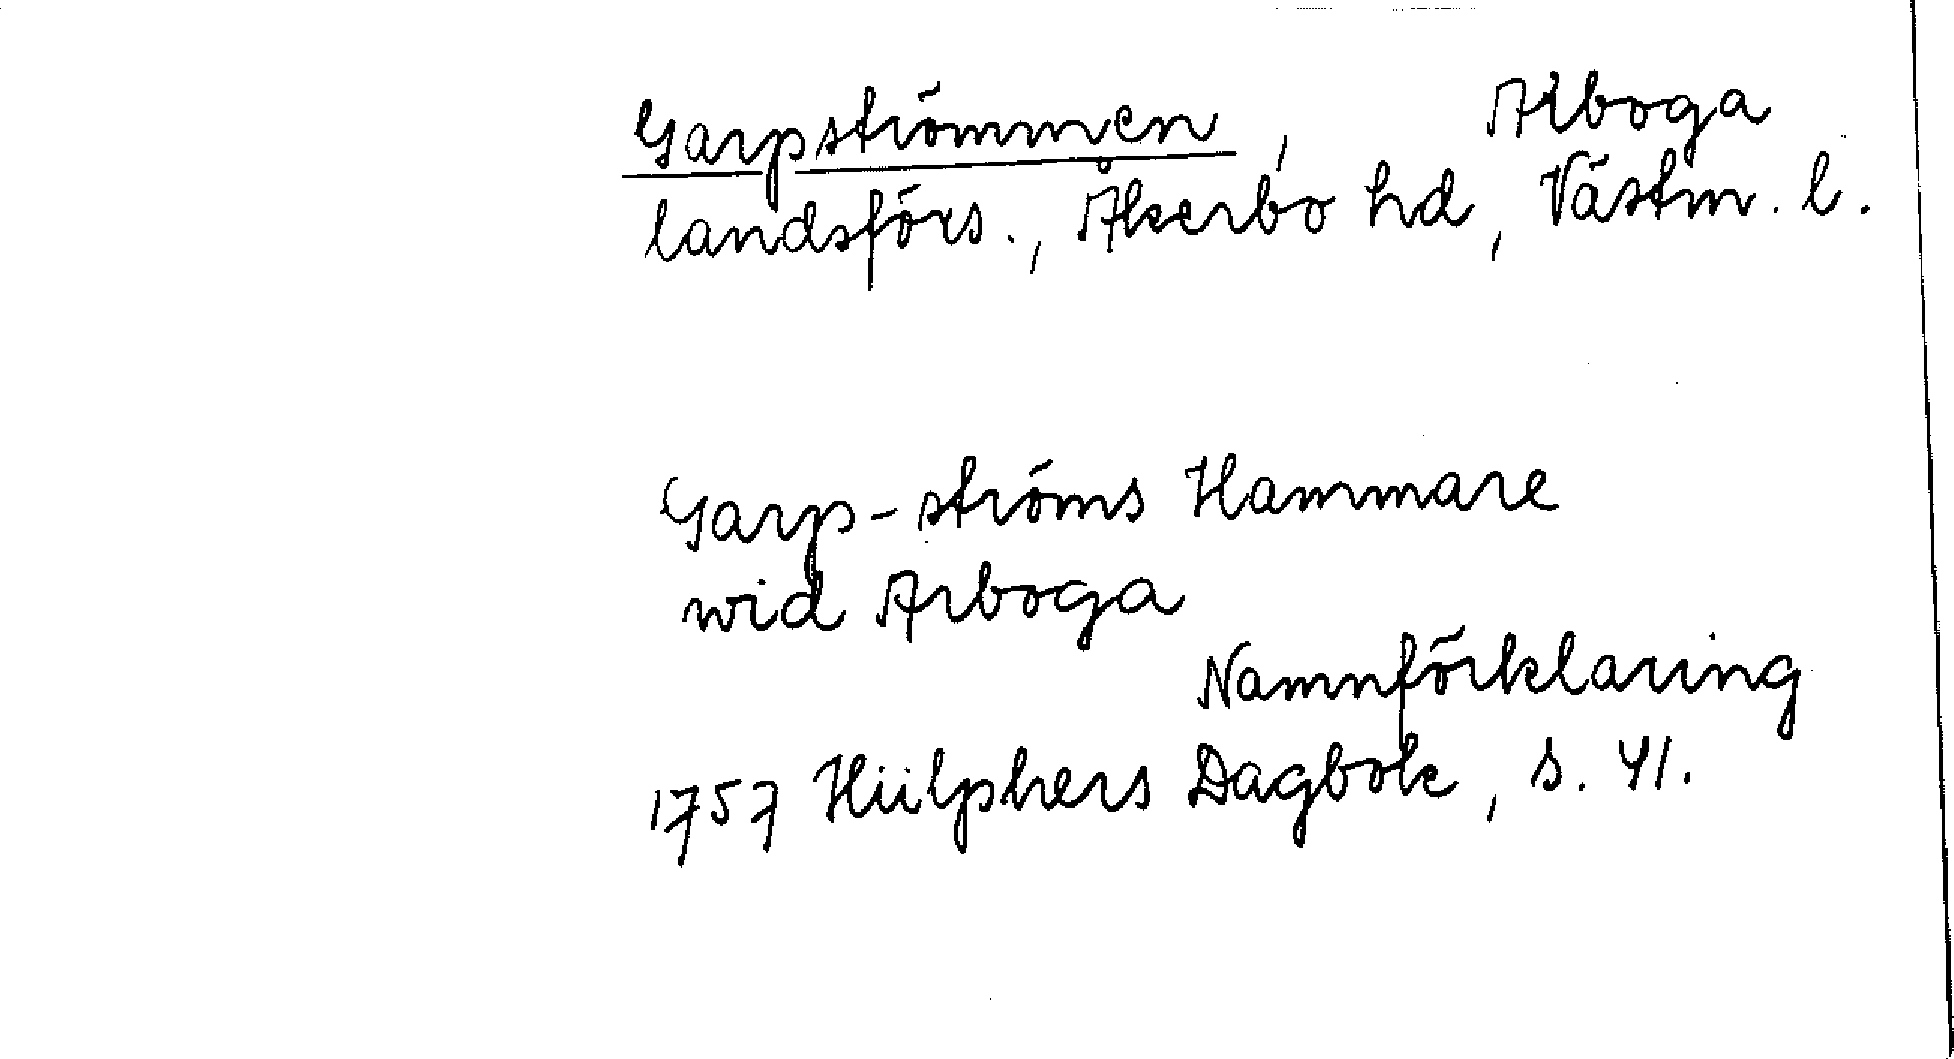 Garpströmmen, Arboga
landsförs., Åkerbo hd, Västm. l.
Garp-ströms Hammare
wid Arboga
Namnförklaring
1757 Hülphers Dagbok, s. 41.